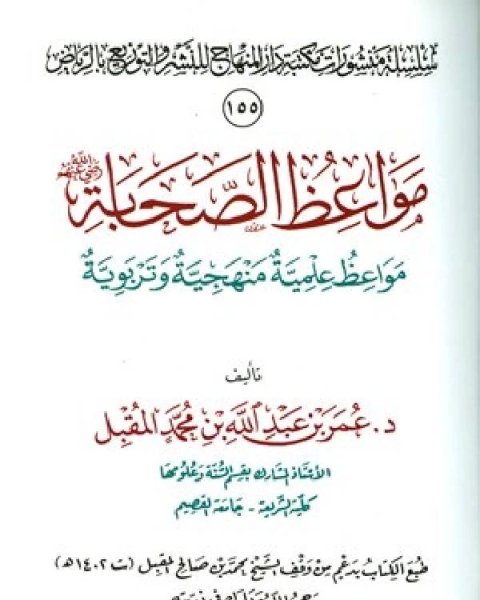 سلسلة منشورات مكتبة دار المنهاج للنشر والتوزيع بالرياض
١٥٥
مَوَاعِظُ الصَّحَابَةِ رضي الله عنهم
مَوَاعِظُ عِلْمِيَّةٌ مَنْهَجِيَّةٌ وَتَرْبَوِيَّةٌ
تأليف
د. عُمَر بْن عَبْدِ اللَّهِ بْنِ مُحَمَّد المُقْبِل
الأستاذ المشارك بقسم السُّنَّة وعلومها
كلية الشريعة - جامعة القصيم
طُبع الكتاب بدعم من وقف الشيخ محمد بن صالح المقبل (ت ١٤٠٢ه)